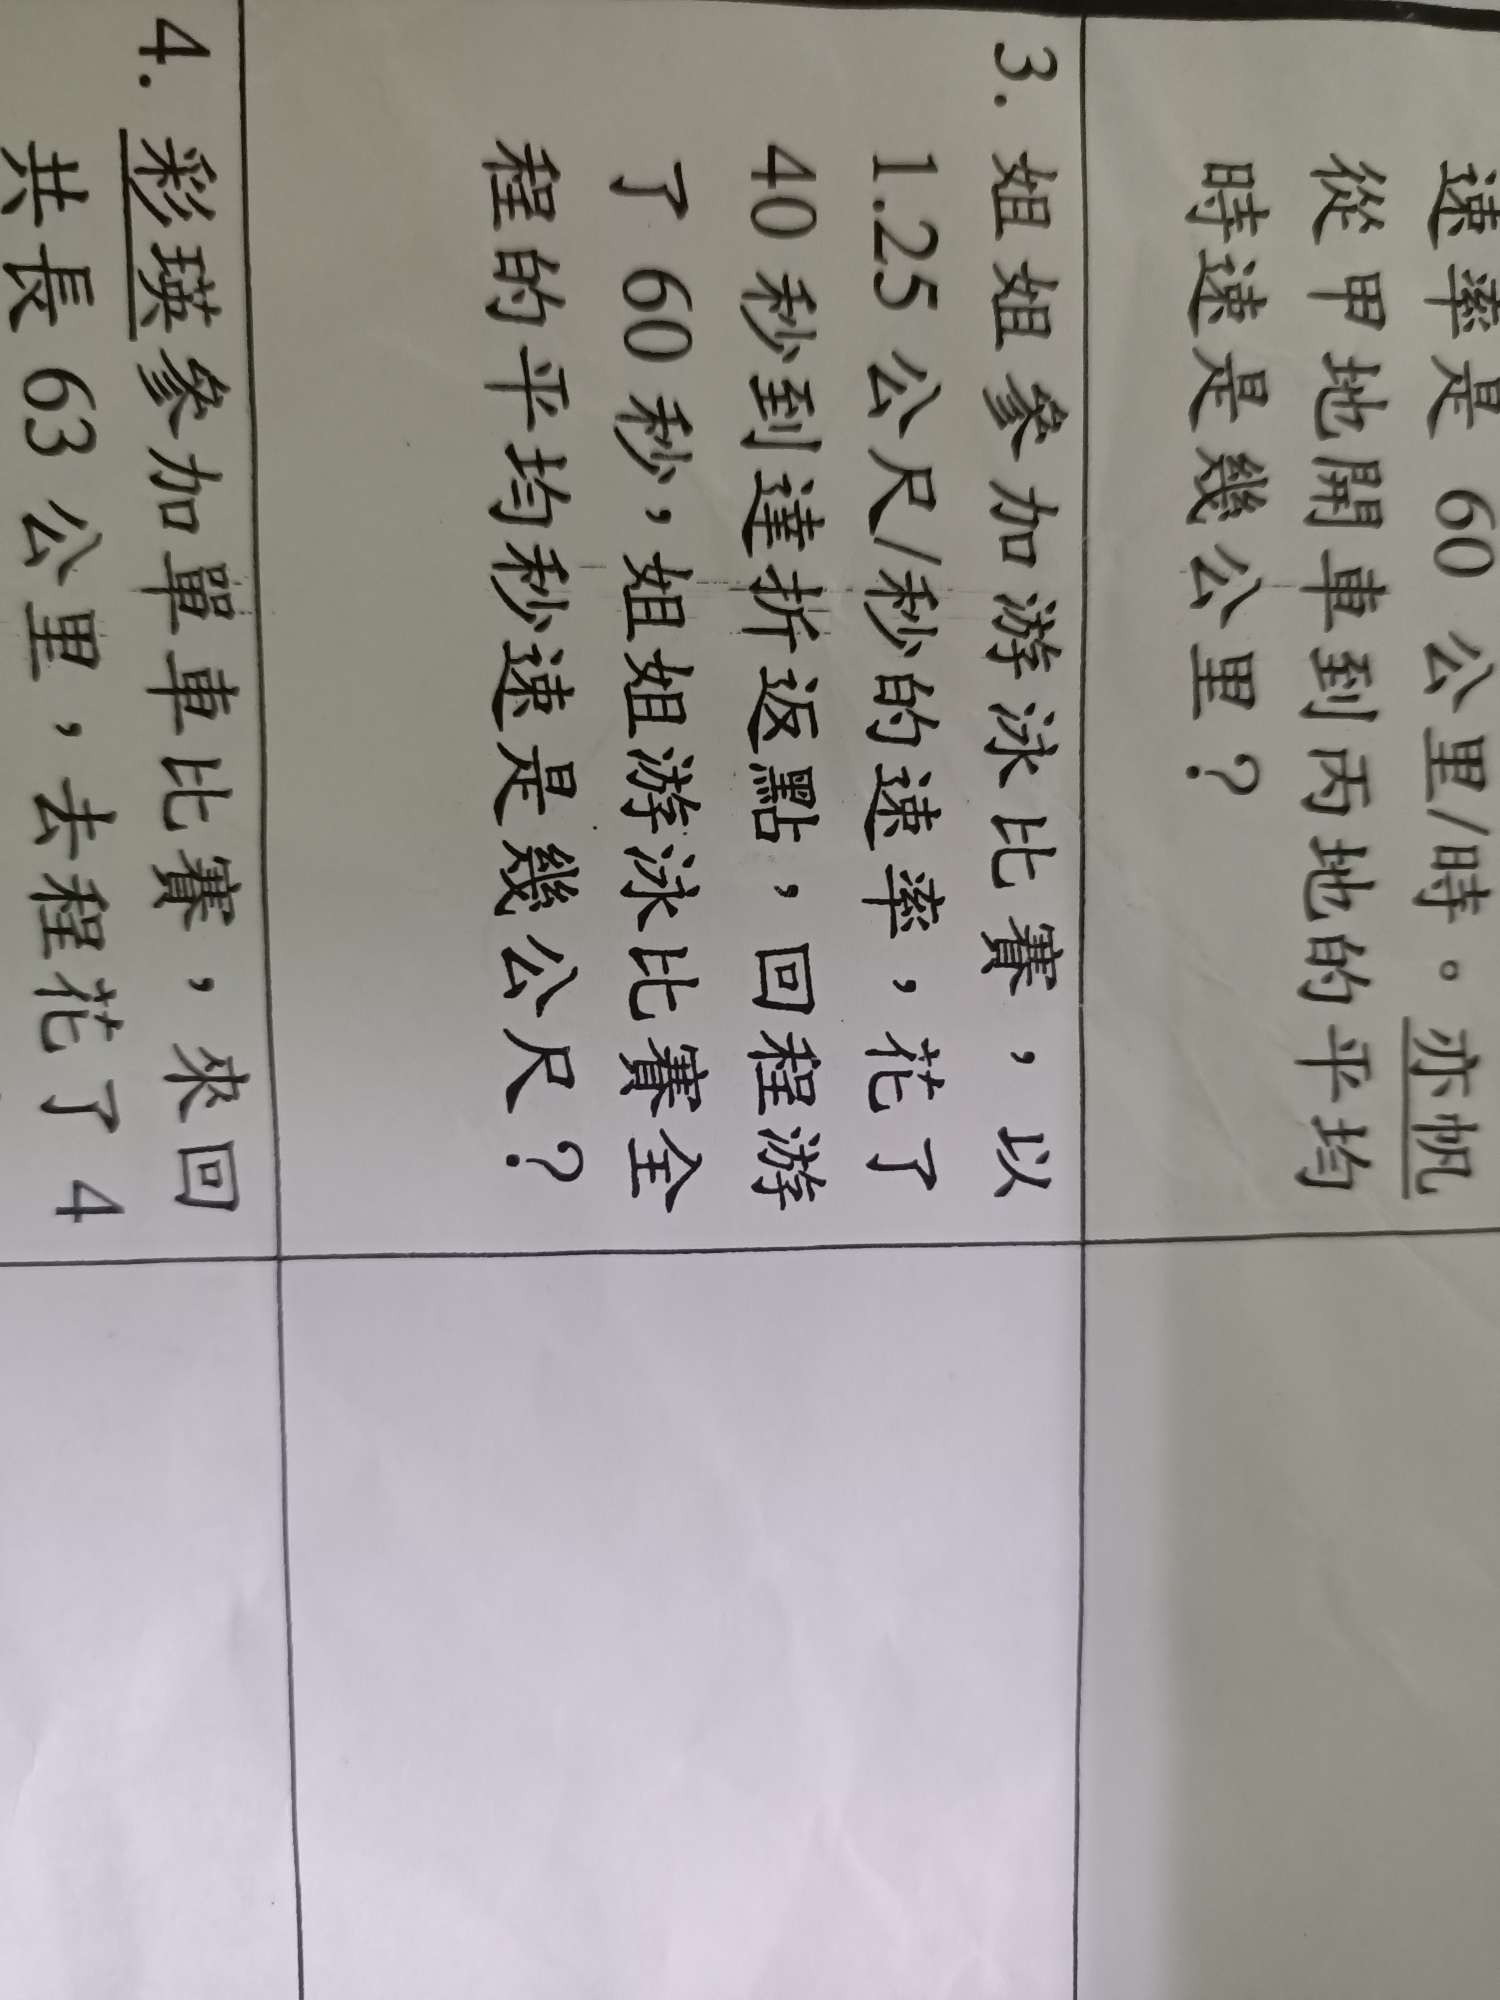 速率是 60 公里/時。亦帆
從甲地開車到丙地的平均
時速是幾公里？
3. 姐姐參加游泳比賽，以
1.25 公尺/秒的速率，花了
40 秒到達折返點，回程游
了 60 秒，姐姐游泳比賽全
程的平均秒速是幾公尺？
4. 彩瑛參加單車比賽，來回
共長 63 公里，去程花了 4